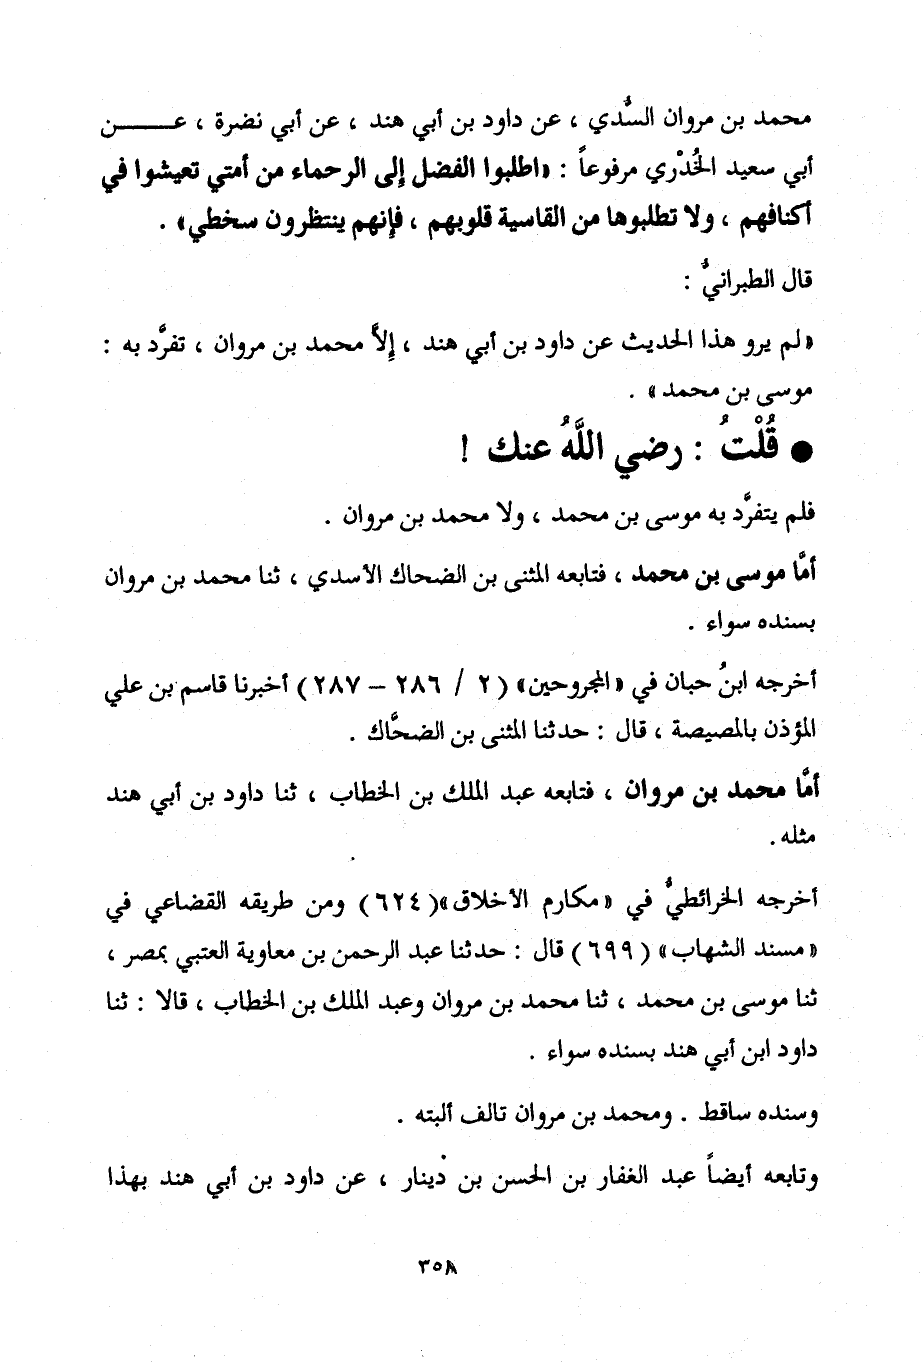 محمد بن مروان السُّدي ، عن داود بن أبي هند ، عن أبي نضرة ، عـــــن
أبي سعيد الخُدْري مرفوعاً : «اطلبوا الفضل إلى الرحماء من أمتي تعيشوا في
أكنافهم ، ولا تطلبوها من القاسية قلوبهم ، فإنهم ينتظرون سخطي» .
قال الطبرانيُّ :
«لم يرو هذا الحديث عن داود بن أبي هند ، إلاَّ محمد بن مروان ، تفرَّد به :
موسى بن محمد» .
● قُلْتُ : رضي اللَّهُ عنك !
فلم يتفرَّد به موسى بن محمد ، ولا محمد بن مروان .
أمَّا موسى بن محمد ، فتابعه المثنى بن الضحاك الأسدي ، ثنا محمد بن مروان
بسنده سواء .
أخرجه ابنُ حبان في «المجروحين» (٢ / ٢٨٦ – ٢٨٧) أخبرنا قاسم بن علي
المؤذن بالمصيصة ، قال : حدثنا المثنى بن الضحَّاك .
أمَّا محمد بن مروان ، فتابعه عبد الملك بن الخطاب ، ثنا داود بن أبي هند
مثله .
أخرجه الخرائطيُّ في «مكارم الأخلاق»(٦٢٤) ومن طريقه القضاعي في
«مسند الشهاب» (٦٩٩) قال : حدثنا عبد الرحمن بن معاوية العتبي بمصر ،
ثنا موسى بن محمد ، ثنا محمد بن مروان وعبد الملك بن الخطاب ، قالا : ثنا
داود ابن أبي هند بسنده سواء .
وسنده ساقط . ومحمد بن مروان تالف ألبته .
وتابعه أيضاً عبد الغفار بن الحسن بن دينار ، عن داود بن أبي هند بهذا
٣٥٨